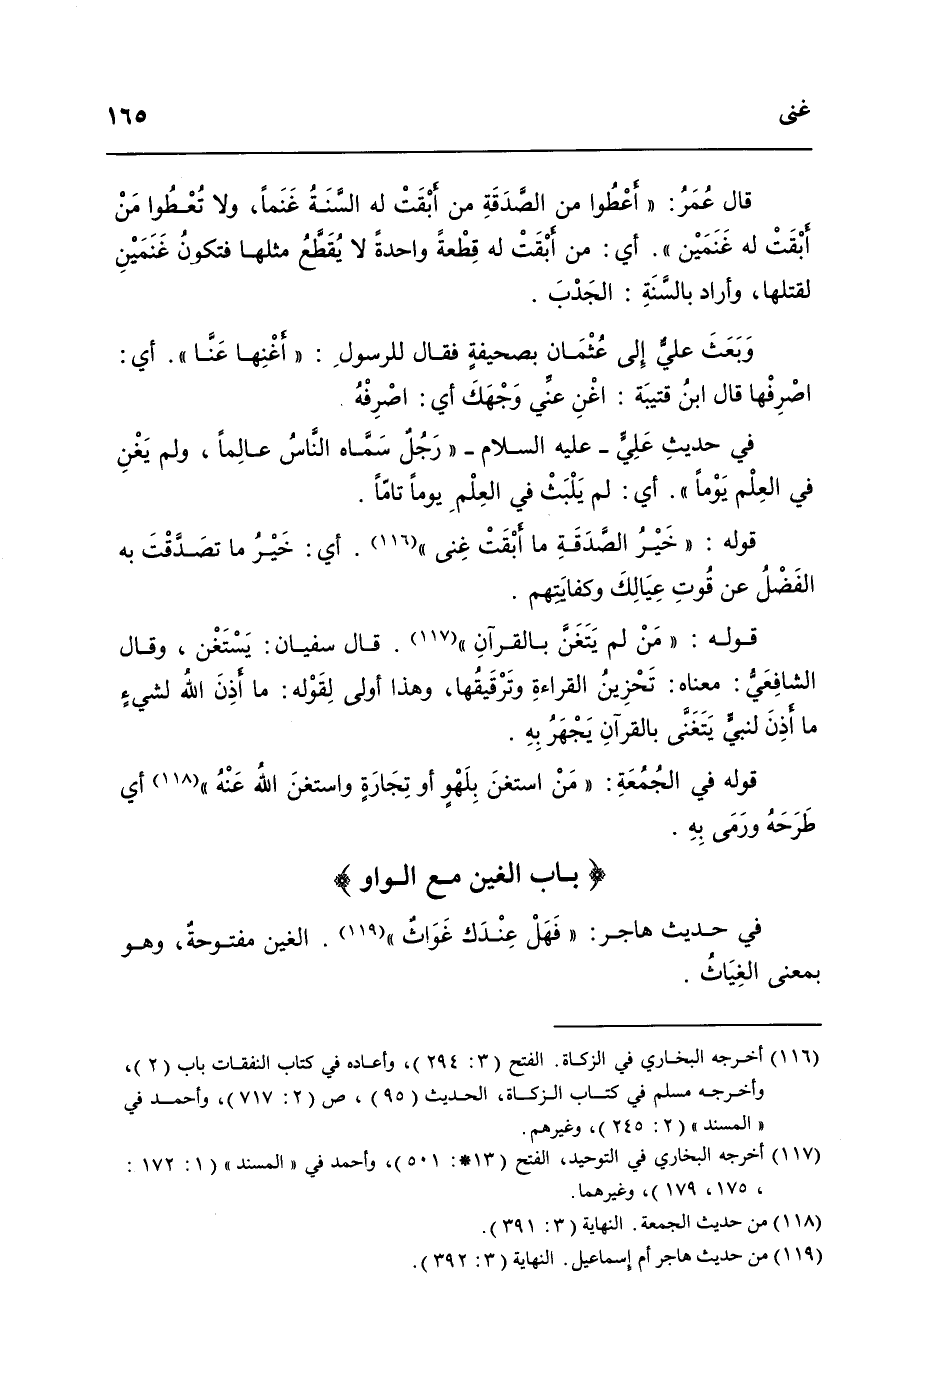 غنى
١٦٥
قال عُمَرُ: « أَعْطُوا من الصَّدَقَةِ من أَبْقَتْ له السَّنَةُ غَنَماً، ولا تُعْطُوا مَنْ
أَبْقَتْ له غَنَمَيْن ». أي: من أَبْقَتْ له قِطْعةً واحدةً لا يُقَطَّعُ مثلها فتكونُ غَنَمَيْنِ
لقتلها، وأراد بالسَّنَةِ : الجَدْبَ .
وَبَعَثَ عليٌّ إلى عُثْمَان بصحيفةٍ فقال للرسولِ : « أَغْنِها عَنَّا ». أي:
اصْرِفْها قال ابنُ قتيبَة : اغْنِ عنِّي وَجْهَكَ أي: اصْرِفْهُ .
في حديثِ عَلِيٍّ - عليه السلام - « رَجُلٌ سَمَّاه النَّاسُ عالِماً ، ولم يَغْنِ
في العِلْم يَوْماً ». أي: لم يَلْبَثْ في العِلْمِ يوماً تامّاً .
قوله : « خَيْرُ الصَّدَقَةِ ما أَبْقَتْ غِنى »(١١٦) . أي: خَيْرُ ما تصَدَّقْتَ به
الفَضْلُ عن قُوتِ عِيَالِكَ وكفايَتِهم .
قوله : « مَنْ لم يَتَغَنَّ بالقرآنِ »(١١٧) . قال سفيان: يَسْتَغْن ، وقال
الشافِعَيُّ: معناه: تَحْزِينُ القراءةِ وتَرْقيقُها، وهذا أولى لِقَوْله: ما أَذِنَ اللهُ لشيءٍ
ما أَذِنَ لنبيٍّ يَتَغَنَّى بالقرآنِ يَجْهَرُ بِهِ .
قوله في الجُمُعَةِ: « مَنْ استغنَ بِلَهْوٍ أو تِجَارَةٍ واستغنَ اللهُ عَنْهُ »(١١٨) أي
طَرَحَهُ ورَمَى بِهِ .
﴿ باب الغين مع الواو ﴾
في حديث هاجر: « فَهَلْ عِنْدَك غَوَاثٌ »(١١٩) . الغين مفتوحةٌ، وهو
بمعنى الغِيَاثُ .
(١١٦) أخرجه البخاري في الزكاة. الفتح (٣: ٢٩٤)، وأعاده في كتاب النفقات باب (٢)،
وأخرجه مسلم في كتاب الزكاة، الحديث (٩٥) ، ص (٢: ٧١٧)، وأحمد في
« المسند » (٢: ٢٤٥)، وغيرهم.
(١١٧) أخرجه البخاري في التوحيد، الفتح (١٣*: ٥٠١)، وأحمد في « المسند » (١: ١٧٢ :
، ١٧٥، ١٧٩ )، وغيرهما.
(١١٨) من حديث الجمعة. النهاية (٣: ٣٩١).
(١١٩) من حديث هاجر أم إسماعيل. النهاية (٣: ٣٩٢).